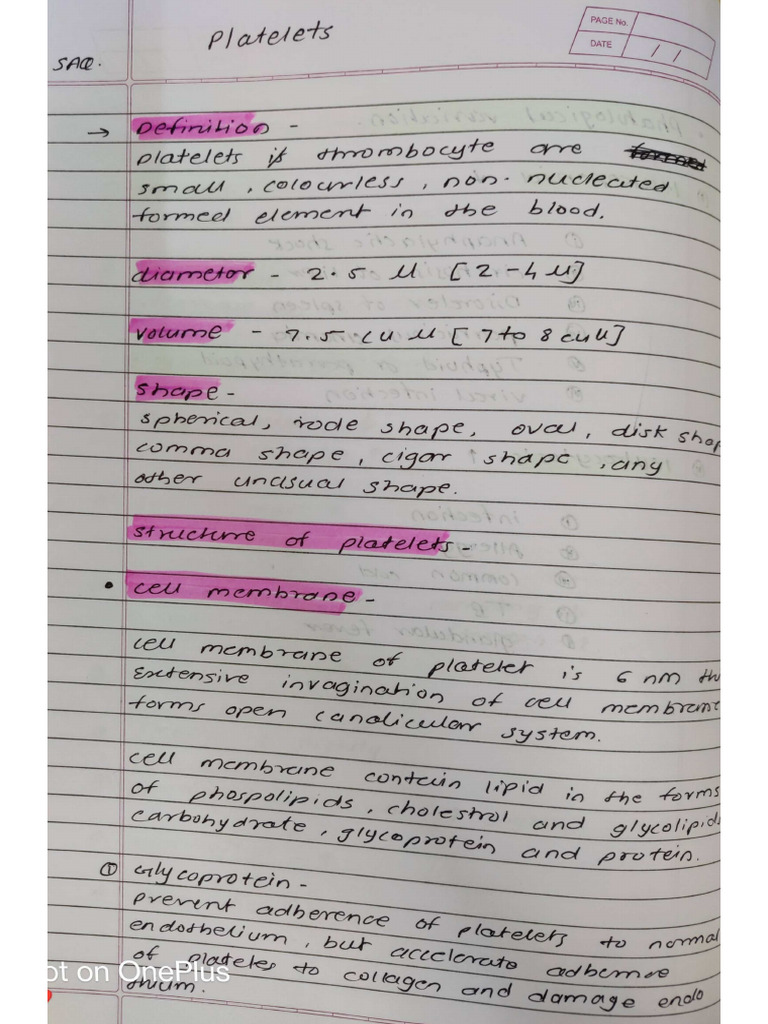 Platelets
PAGE No.
DATE / /
SAQ.
→ Definition -
platelets is thrombocyte are
small, colourless, non-nucleated
formed element in the blood.
diameter - 2.5 µ [2-4 µ]
volume - 7.5 cu µ [7 to 8 cu µ]
shape -
spherical, rode shape, oval, disk shap
comma shape, cigar shape, any
other unusual shape.
structure of platelets -
• cell membrane -
cell membrane of platelet is 6 nm th
Extensive invagination of cell membrane
forms open canalicular system.
cell membrane contain lipid in the forms
of phospolipids, cholestrol and glycolipids
carbohydrate, glycoprotein and protein.
① Glycoprotein -
prevent adherence of platelets to normal
endothelium, but accelerate adhernce
of plateles to collagen and damage endo
thium.
ot on OnePlus